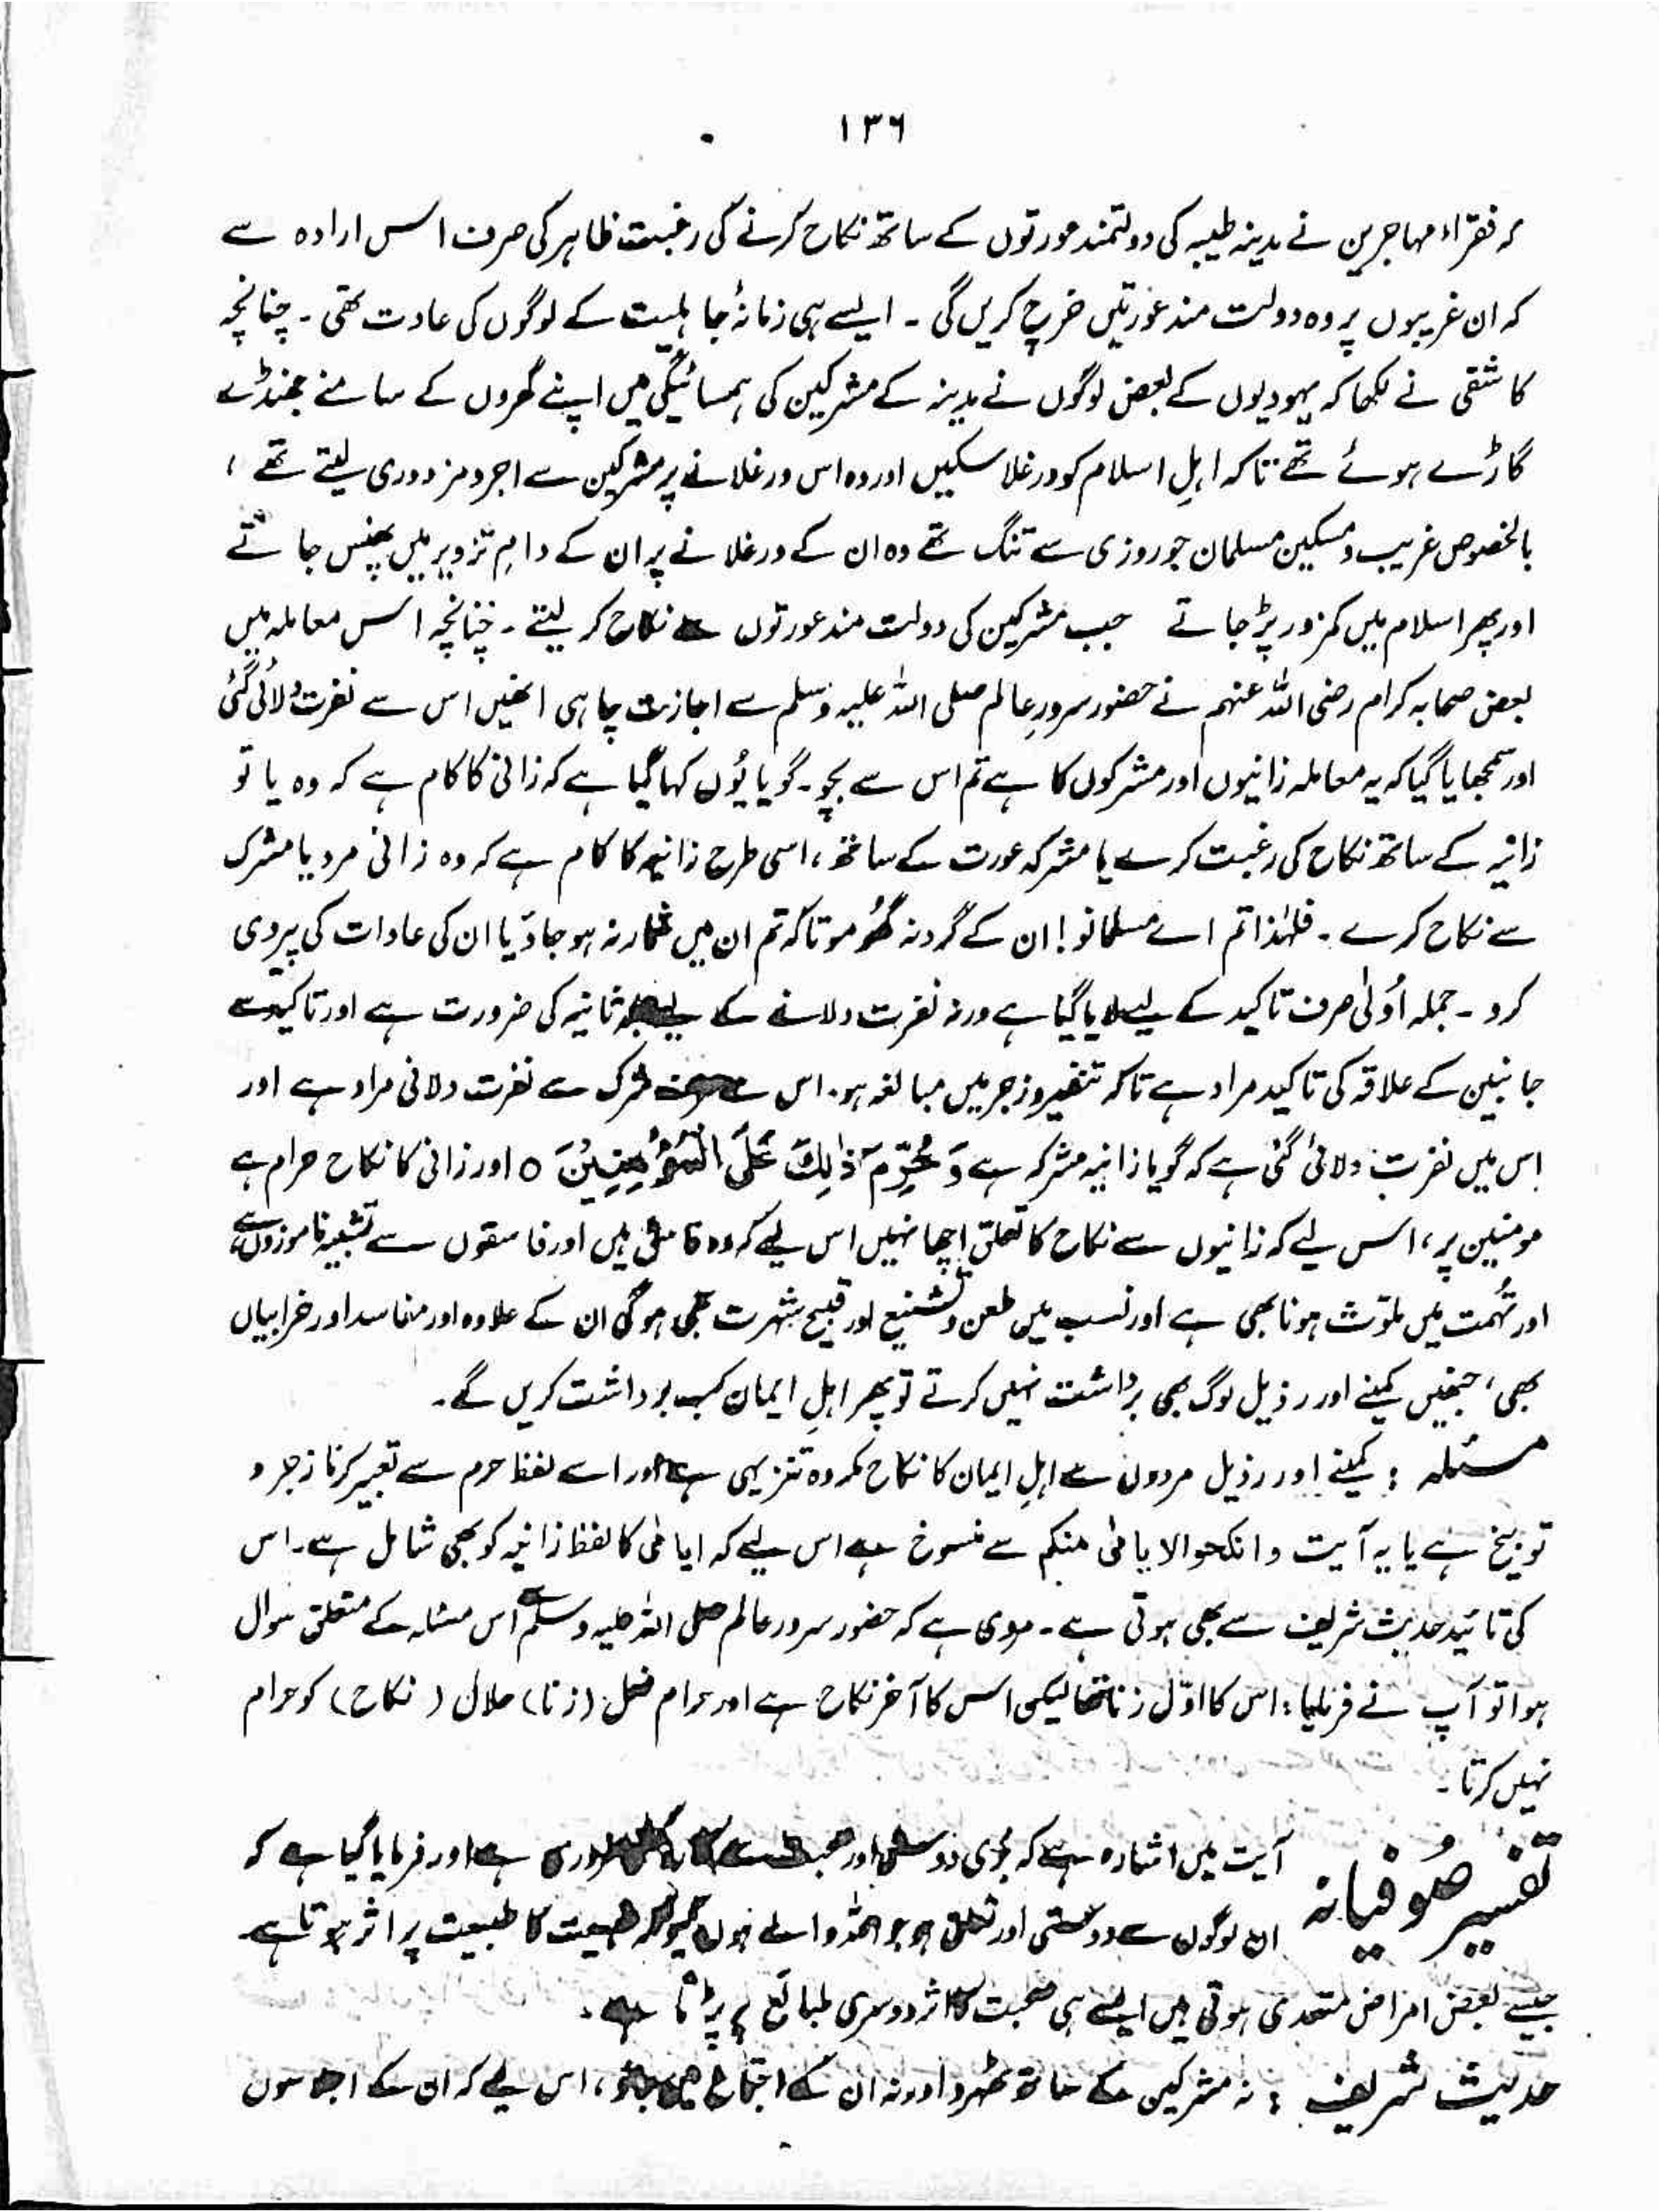 ۱۳۶
کہ فقراء مہاجرین نے مدینہ طیبہ کی دولتمند عورتوں کے ساتھ نکاح کرنے کی رغبت ظاہر کی صرف اس ارادہ سے
کہ ان غریبوں پر وہ دولت مند عورتیں خرچ کریں گی ۔ ایسے ہی زمانۂ جاہلیت کے لوگوں کی عادت تھی ۔ چنانچہ
کاشفی نے لکھا کہ یہودیوں کے بعض لوگوں نے مدینہ کے مشرکین کی ہمسائیگی میں اپنے گھروں کے سامنے جھنڈے
گاڑے ہوئے تھے تاکہ اہلِ اسلام کو ورغلا سکیں اور وہ اس ورغلانے پر مشرکین سے اجر و مزدوری لیتے تھے ،
بالخصوص غریب و مسکین مسلمان جو روزی سے تنگ تھے وہ ان کے ورغلانے پر ان کے دامِ تزویر میں پھنس جاتے
اور پھر اسلام میں کمزور پڑ جاتے جب مشرکین کی دولت مند عورتوں سے نکاح کر لیتے ۔ چنانچہ اس معاملہ میں
بعض صحابہ کرام رضی اللہ عنہم نے حضور سرورِ عالم صلی اللہ علیہ وسلم سے اجازت چاہی انھیں اس سے نفرت دلائی گئی
اور سمجھایا گیا کہ یہ معاملہ زانیوں اور مشرکوں کا ہے تم اس سے بچو ۔ گویا یُوں کہا گیا ہے کہ زانی کا کام ہے کہ وہ یا تو
زانیہ کے ساتھ نکاح کی رغبت کرے یا مشرکہ عورت کے ساتھ ، اسی طرح زانیہ کا کام ہے کہ وہ زانی مرد یا مشرک
سے نکاح کرے ۔ فلہٰذا تم اے مسلمانو ! ان کے گرد نہ گھُومو تاکہ تم ان میں شمار نہ ہو جاؤ یا ان کی عادات کی پیروی
کرو ۔ جملہ اُولٰی صرف تاکید کے لیے لایا گیا ہے ورنہ نفرت دلانے کے لیے جملہ ثانیہ کی ضرورت ہے اور تاکید سے
جانبین کے علاقہ کی تاکید مراد ہے تاکہ تنفیر و زجر میں مبالغہ ہو ۔ اس سے شرک سے نفرت دلانی مراد ہے اور
اس میں نفرت دلائی گئی ہے کہ گویا زانیہ مشرکہ ہے وَحُرِّمَ ذٰلِكَ عَلَى الْمُؤْمِنِيْنَ ○ اور زانی کا نکاح حرام ہے
مومنین پر ، اس لیے کہ زانیوں سے نکاح کا تعلق اچھا نہیں اس لیے کہ وہ فاسق ہیں اور فاسقوں سے تشبیہ ناموزوں ہے
اور تُہمت میں ملوّث ہونا بھی ہے اور نسب میں طعن و تشنیع اور قبیح شہرت بھی ہوگی ان کے علاوہ اور مفاسد اور خرابیاں
بھی ، جنھیں کمینے اور رذیل لوگ بھی برداشت نہیں کرتے تو پھر اہلِ ایمان کب برداشت کریں گے ۔
مسئلہ : کمینے اور رذیل مردوں سے اہلِ ایمان کا نکاح مکروہ تنزیہی ہے اور اسے لفظ حرم سے تعبیر کرنا زجر و
توبیخ ہے یا یہ آیت وانکحوا الایامٰی منکم سے منسوخ ہے اس لیے کہ ایامٰی کا لفظ زانیہ کو بھی شامل ہے ۔ اس
کی تائید حدیث شریف سے بھی ہوتی ہے ۔ مروی ہے کہ حضور سرور عالم صلی اللہ علیہ وسلم سے اس مسئلہ کے متعلق سوال
ہوا تو آپ نے فرمایا : اس کا اوّل زنا تھا لیکن اس کا آخر نکاح ہے اور حرام فعل (زنا) حلال ( نکاح) کو حرام
نہیں کرتا ۔
تفسیر صُوفیانہ آیت میں اشارہ ہے کہ بُری دوستی اور ضروری ہے اور فرمایا گیا ہے کہ
ان لوگوں سے دوستی اور تعلق ہو جو اللہ والے ہوں کیونکہ طبیعت کا طبیعت پر اثر ہوتا ہے
جیسے بعض امراض متعدی ہوتی ہیں ایسے ہی صحبت کا اثر دوسری طبائع پر پڑتا ہے ۔
حدیث شریف : نہ مشرکین کے ساتھ ٹھہرو اور نہ ان کے اجتماع میں جاؤ ، اس لیے کہ ان کے